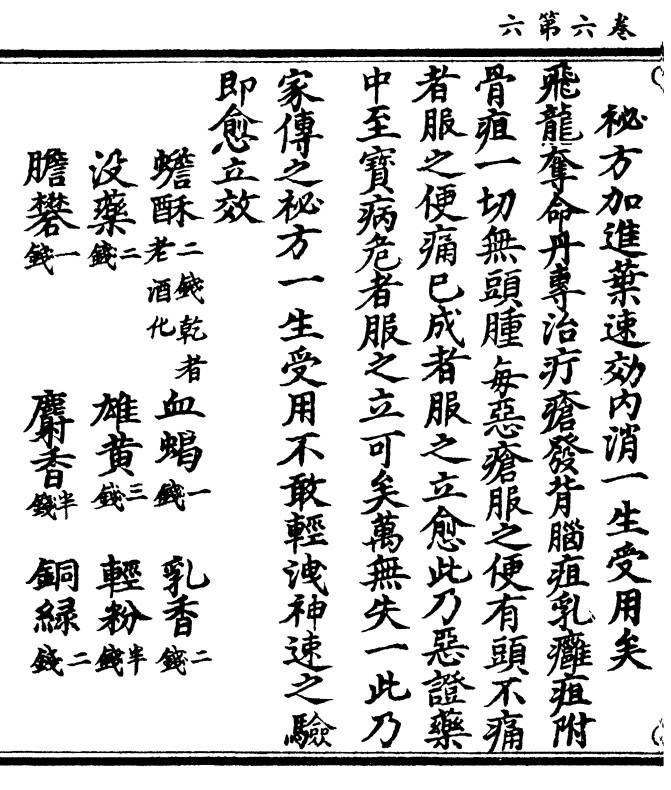 卷六第六
秘方加進藥速効內消一生受用矣
飛龍奪命丹專治疔瘡發背腦疽乳癰疽附
骨疽一切無頭腫每惡瘡服之便有頭不痛
者服之便痛已成者服之立愈此乃惡證藥
中至寶病危者服之立可矣萬無失一此乃
家傳之秘方一生受用不敢輕洩神速之驗
即愈立效
蟾酥二錢乾者老酒化 血蝎一錢 乳香二錢
没藥二錢 雄黄三錢 輕粉半錢
膽礬一錢 麝香半錢 銅緑二錢